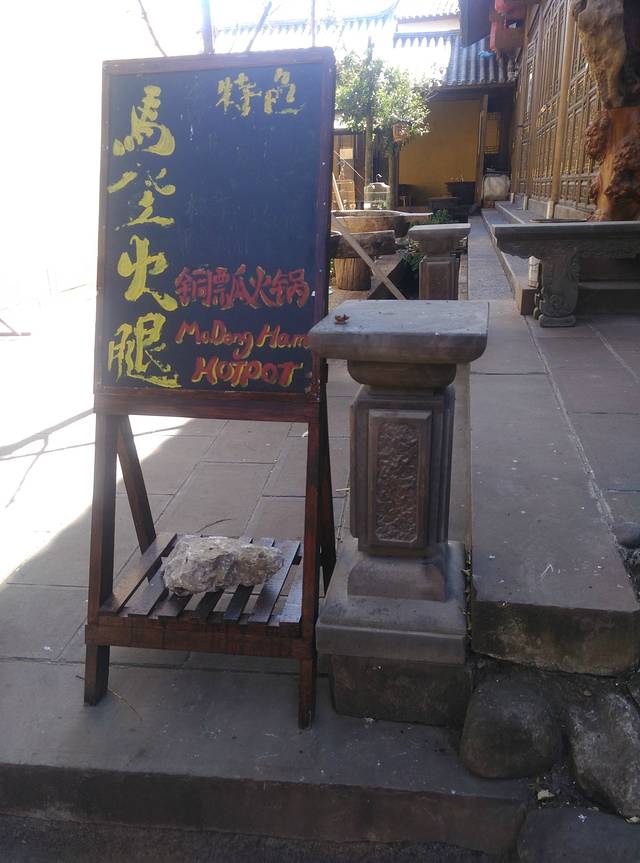 特色
馬登火腿
铜瓢火锅
MaDeng Ham
HOTPOT